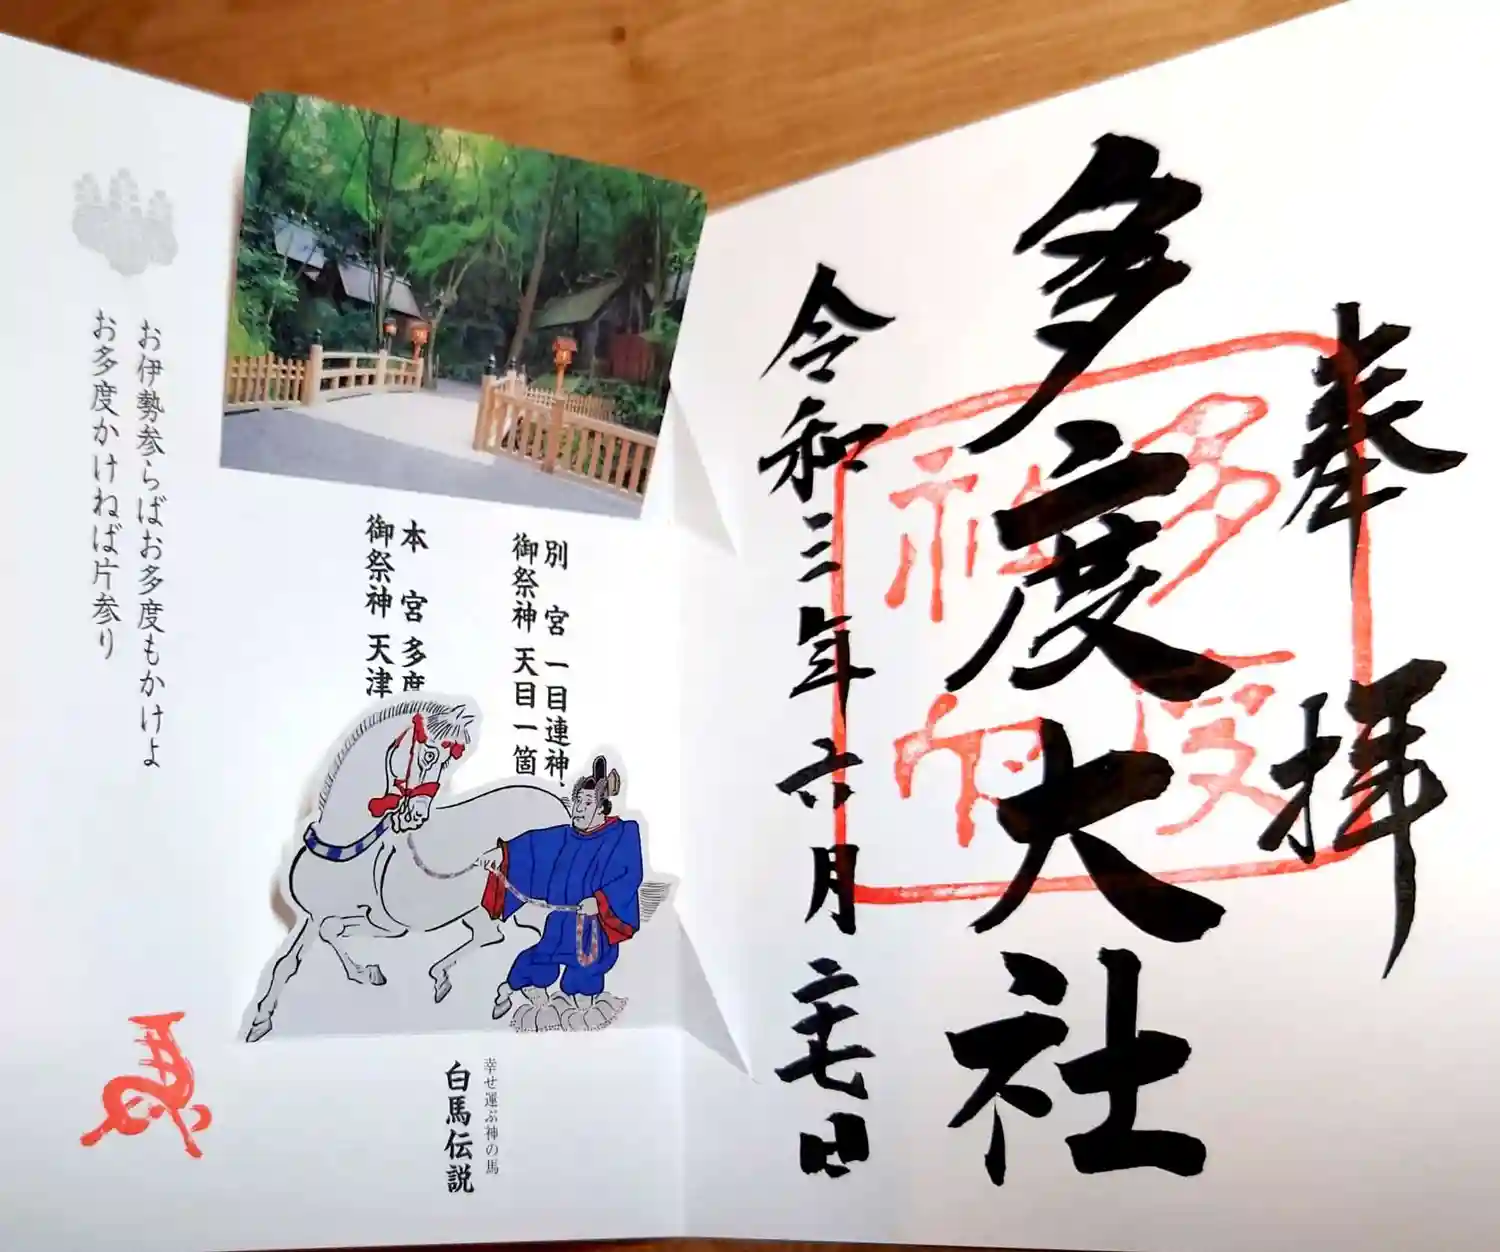 奉拝
多度大社
多度神印
令和三年六月二十七日
別宮 一目連神
御祭神 天目一箇
本宮 多度
御祭神 天津
幸せ運ぶ神の馬
白馬伝説
お伊勢参らばお多度もかけよ
お多度かけねば片参り
馬